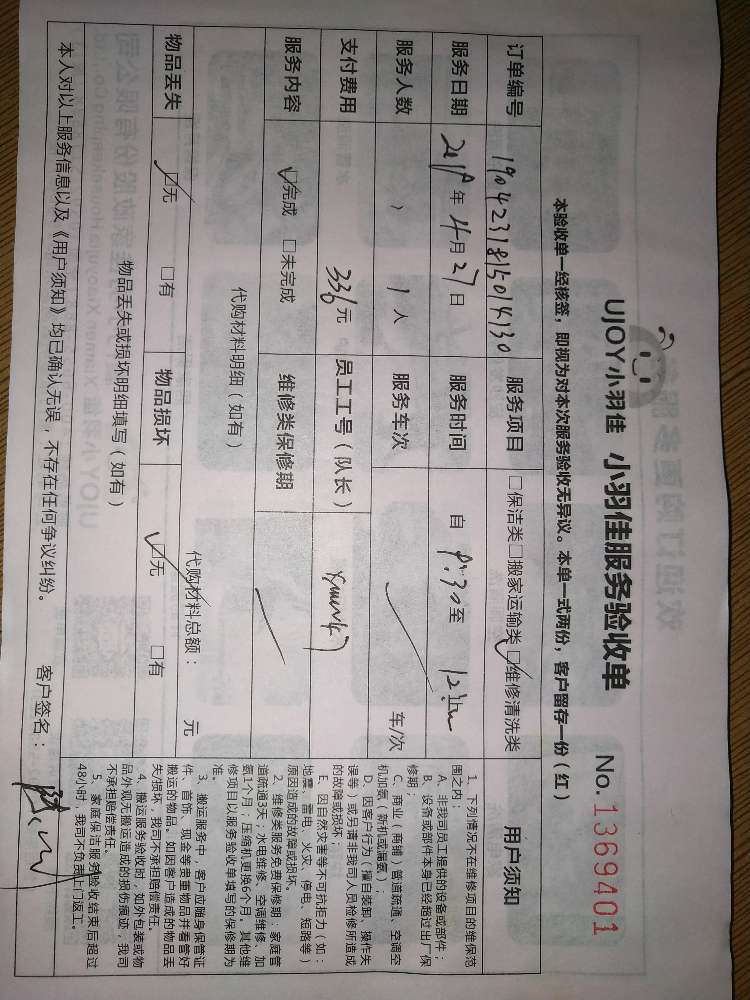 UJOY小羽佳 小羽佳服务验收单 No. 1369401
本验收单一经核签，即视为对本次服务验收无异议。本单一式两份，客户留存一份（红）
订单编号 1904231815014130 服务项目 □保洁类□搬家运输类☑维修清洗类 用户须知
服务日期 2019年4月27日 服务时间 自 9:30至
服务人数 1人 服务车次 车/次
支付费用 336元 员工工号（队长）
服务内容 ☑完成 □未完成 维修类保修期
代购材料明细（如有）
代购材料总额： 元
物品丢失 ☑无 □有 物品损坏 ☑无 □有
物品丢失或损坏明细填写（如有）
本人对以上服务信息以及《用户须知》均已确认无误，不存在任何争议纠纷。 客户签名：
1、下列情况不在维修项目的维保范
围之内：
A、非我司员工提供的设备或部件；
B、设备或部件本身已经超过出厂保
修期；
C、商业（商铺）管道疏通、空调空
机加氨（新机或漏氨）；
D、因客户行为（擅自装卸、操作失
误等）或另请非我司人员检修所造成
的故障或损坏；
E、因自然灾害等不可抗拒力（如：
地震、雷电、火灾、停电、短路等）
原因造成的故障或损坏。
2、维修类服务免费保修期：家庭管
道疏通3天，水电维修、空调维修、加
氨1个月；压缩机更换6个月。其他维
修项目以服务验收单填写的保修期为
准。
3、搬运服务中，客户应随身保管证
件、首饰、现金等贵重物品并看管好
搬运的物品。如因客户造成的物品丢
失/损坏，我司不承担赔偿责任。
4、搬运服务验收时，如外包装或物
品外观无搬运造成的损伤痕迹，我司
不承担赔偿责任。
5、家庭保洁服务验收结束后超过
48小时，我司不负责上门返工。